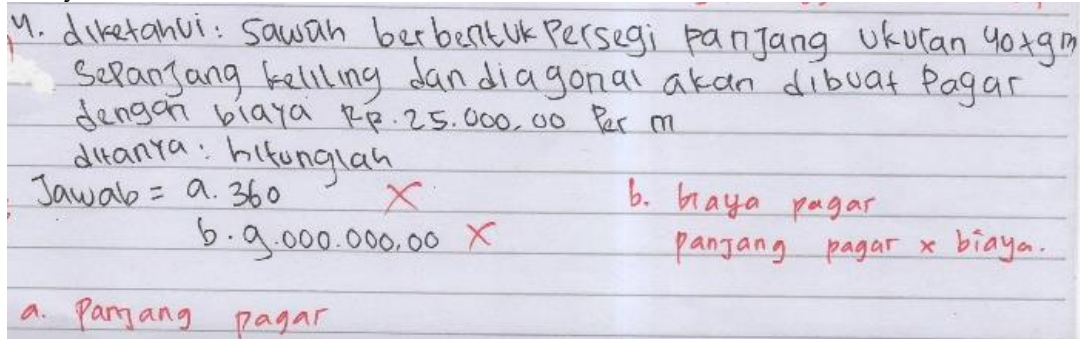 4. diketahui: Sawah berbentuk Persegi panjang ukuran 40x9m
Sepanjang keliling dan diagonal akan dibuat Pagar
dengan biaya Rp. 25.000,00 Per m
ditanya: hitunglah
Jawab = a. 360 X
b. 9.000.000,00 X
b. biaya pagar
panjang pagar x biaya.
a. Panjang pagar